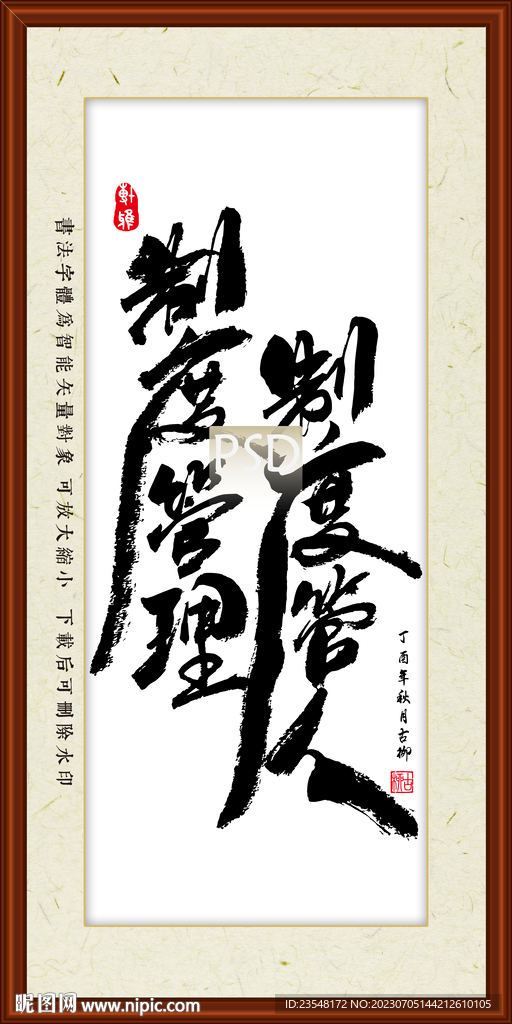 軒雅
制度管理
制度管人
丁酉年秋月古柳
書法字體為智能矢量對象 可放大縮小 下載后可刪除水印
PSD
昵图网 www.nipic.com
ID:23548172 NO:20230705144212610105